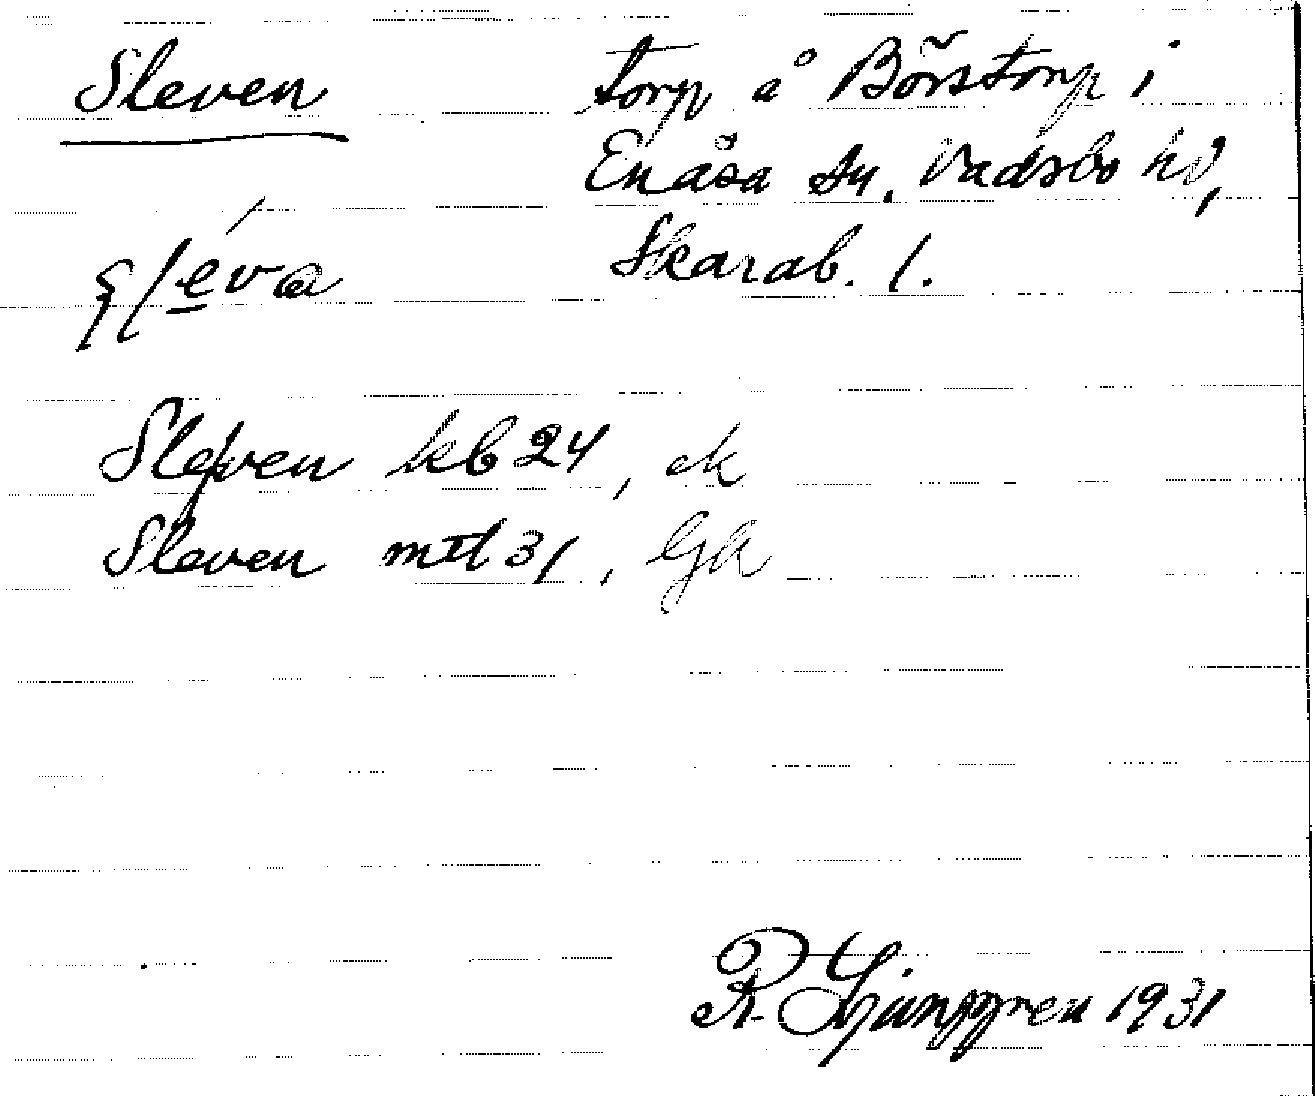 Sleven
torp å Börstorp i
Enåsa sn. Vadsbo hd,
Skarab. l.
Slefven kb 24, ek
Sleven mtl 31, Gk
R. Ljunggren 1931